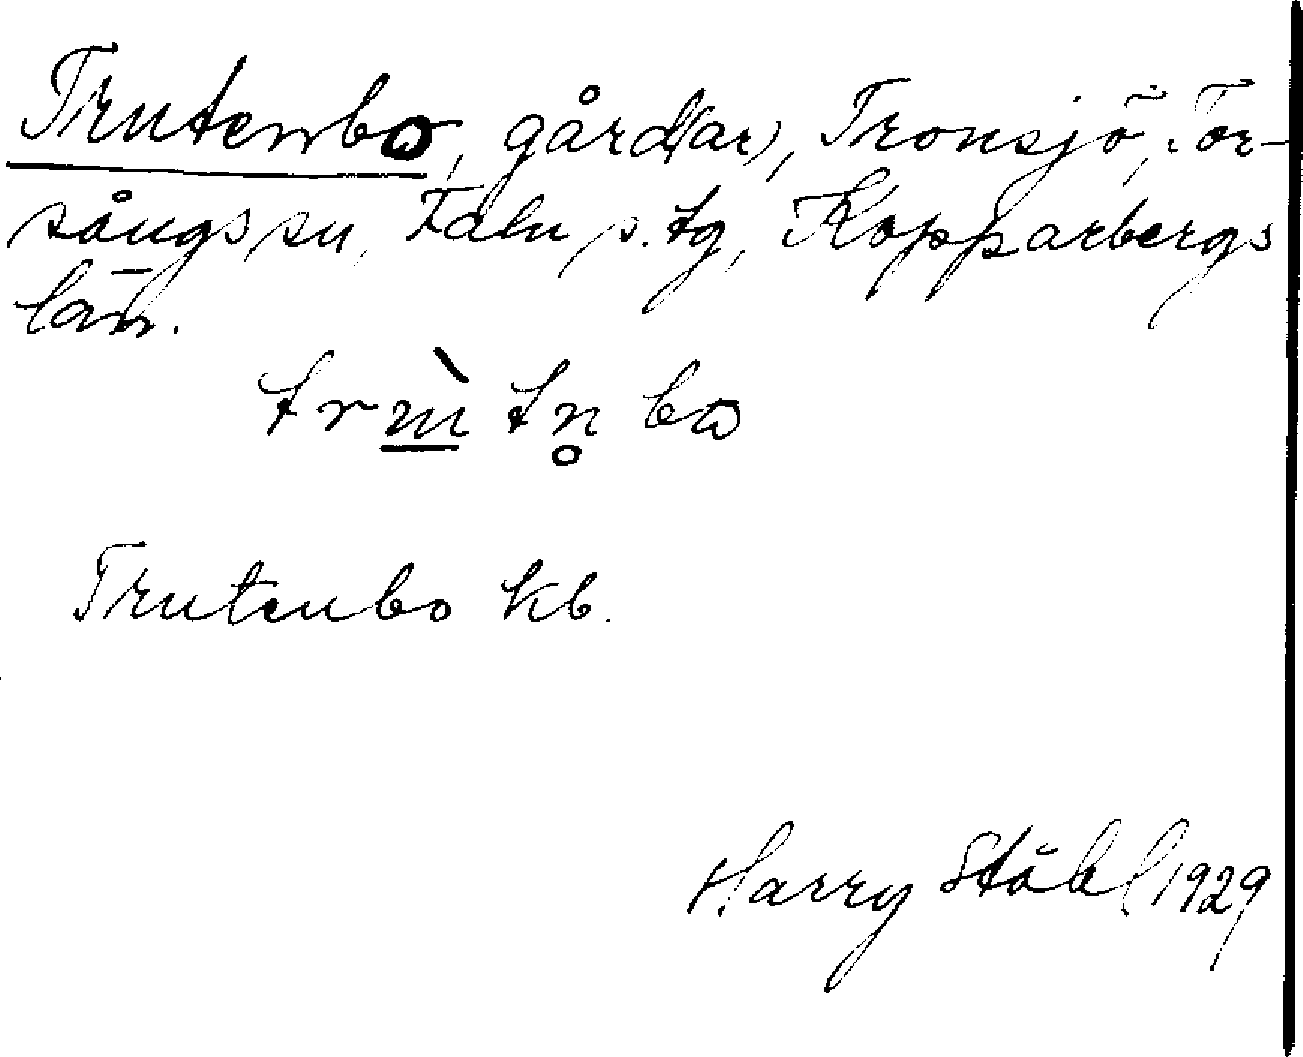 Trutenbo, gård(ar), Tronsjö, Tor-
sångs sn, Falu s. tg, Kopparbergs
län.
trɯ̀tn̥bɷ
Trutenbo kb.
Harry Ståhl 1929